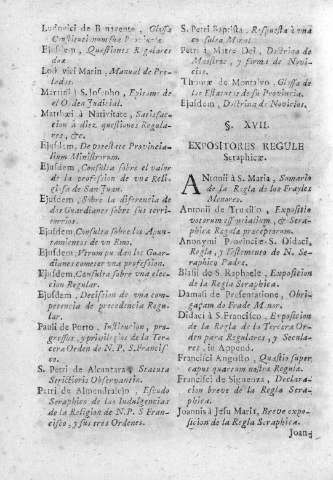 Ludovici de Bunvente, Glossa
Constitucionum suæ Provinciæ.
Ejusdem, Questiones Regulares
duæ.
Lodovici Marin, Manual de Prelados.
Martini à S. Josepho, Epitome de
el Orden Judicial.
Matthæi à Nativitate, Satisfaccion
à diez questiones Regulares,
&c.
Ejusdem, De præelitate Provincialium
Ministrorum.
Ejusdem, Consulta sobre el valor
de la profesion de una Religiosa
de San Juan.
Ejusdem, Sobre la diferencia de
dos Guardianes sobre sus territorios.
Ejusdem, Consulta sobre los Apuntamientos
de un Emo.
Ejusdem, Verum pu dos los Guardianes
cometer una profesion.
Ejusdem, Consulta sobre una eleccion
Regular.
Ejusdem, Decision de una competencia
de precedencia Regular.
Pauli de Porto, Institucion, progressos,
y privilegios de la Tercera
Orden de N. P. S. Francisco.
S. Petri de Alcantara, Statuta
Strictioris Observantiæ.
Patri de Almendralejo, Escudo
Seraphico de las Indulgencias
de la Religion de N. P. S Francisco,
y sus tres Ordenes.
S. Petri Baptista, Respuesta à una
consulta Moral.
Petri à Matre Dei, Doctrina de
Maestros, y forma de Novicios.
Thomæ de Montalvo, Glossa de
los Estatutos de su Provincia.
Ejusdem, Doctrina de Novicios.
§. XVII.
EXPOSITORES REGULE
Seraphicæ.
Antonii à S. Maria, Sumario
de la Regla de los Frayles
Menores.
Antonii de Truxillo, Expositio
votorum essentialium, & Seraphica
Regula præceptorum.
Anonymi Provinciæ S. Didaci,
Regla, y Testamento de N. Seraphico
Padre.
Blasii de S. Raphaele, Exposicion
de la Regla Seraphica.
Damasi de Presentatione, Obrigaçam
do Frade Menor.
Didaci à S. Francisco, Exposicion
de la Regla de la Tercera Orden
para Regulares, y Seculares,
in Append.
Francisci Angusto, Quæstio super
capus quartum nostræ Regulæ.
Francisci de Siguenza, Declaracion
breve de la Regla Seraphica.
Joannis à Jesu Maria, Breve exposicion
de la Regla Seraphica.
Joan-